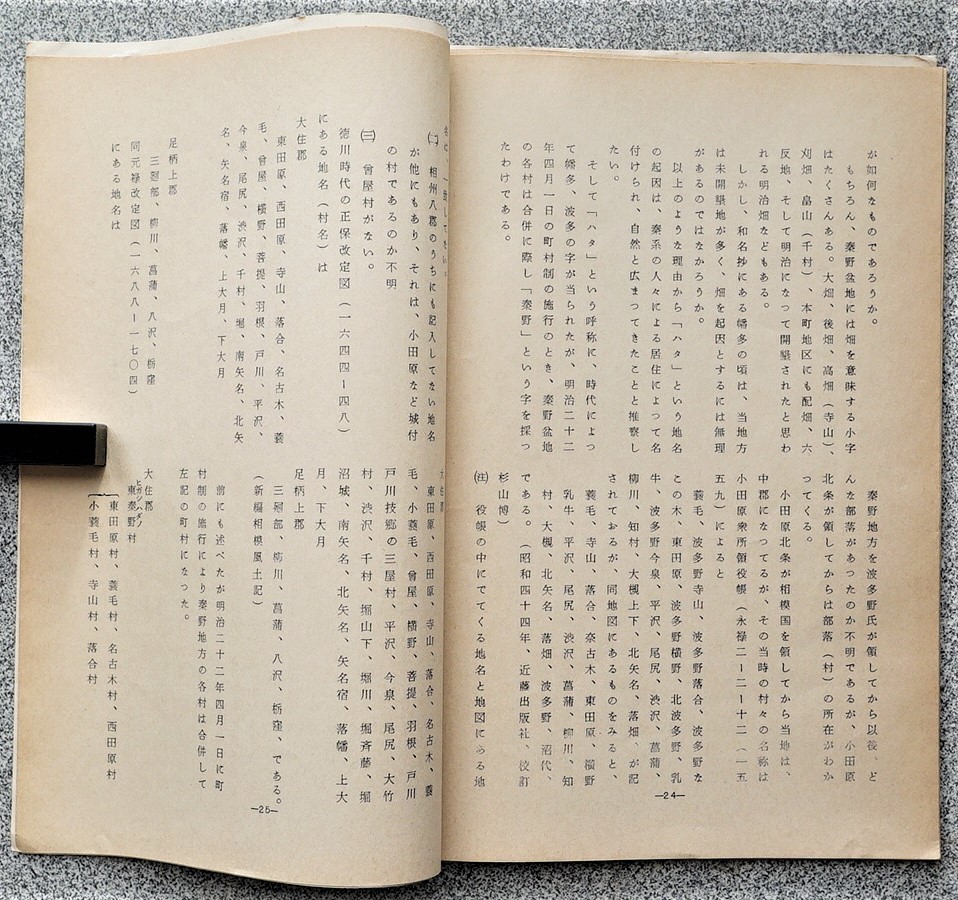 が如何なものであろうか。
もちろん、秦野盆地には畑を意味する小字
はたくさんある。大畑、後畑、高畑（寺山）、
刈畑、畠山（千村）、本町地区にも配畑、六
反地、そして明治になって開墾されたと思わ
れる明治畑などもある。
しかし、和名抄にある幡多の頃は、当地方
は未開墾地が多く、畑を起因とするには無理
があるのではなかろうか。
以上のような理由から「ハタ」という地名
の起因は、秦系の人々による居住によって名
付けられ、自然と広まってきたことと推察し
たい。
そして「ハタ」という呼称に、時代によっ
て幡多、波多の字が当られたが、明治二十二
年四月一日の町村制の施行のとき、秦野盆地
の各村は合併に際し「秦野」という字を採っ
たわけである。
秦野地方を波多野氏が領してから以後、ど
んな部落があったのか不明であるが、小田原
北条が領してからは部落（村）の所在がわか
ってくる。
小田原北条が相模国を領してから当地は、
中郡になってるが、その当時の村々の名称は
小田原衆所領役帳（永禄二ー二ー十二（一五
五九）によると
蓑毛、波多野寺山、波多野落合、波多野な
この木、東田原、波多野横野、北波多野、乳
牛、波多野今泉、平沢、尾尻、渋沢、菖蒲、
柳川、知村、大槻上下、北矢名、落畑、が記
されておるが、同地図にあるものをみると、
蓑毛、寺山、落合、奈古木、東田原、横野
乳牛、平沢、尾尻、渋沢、菖蒲、柳川、知
村、大槻、北矢名、落畑、波多野、沼代、
である。（昭和四十四年、近藤出版社、校訂
杉山博）
㊟ 役帳の中にでてくる地名と地図にある地
―24―
㈡ 相州八郡のうちにも記入してない地名
が他にもあり、それは、小田原など城付
の村であるのか不明
㈢ 曾屋村がない。
徳川時代の正保改定図（一六四四ー四八）
にある地名（村名）は
大住郡
東田原、西田原、寺山、落合、名古木、蓑
毛、曾屋、横野、菩提、羽根、戸川、平沢、
今泉、尾尻、渋沢、千村、堀、南矢名、北矢
名、矢名宿、落幡、上大月、下大月
足柄上郡
三廻部、柳川、菖蒲、八沢、栃窪
同元禄改定図（一六八八ー一七〇四）
にある地名は
大住郡
東田原、西田原、寺山、落合、名古木、蓑
毛、小蓑毛、曾屋、横野、菩提、羽根、戸川
戸川技郷の三屋村、平沢、今泉、尾尻、大竹
村、渋沢、千村、堀山下、堀川、堀斉藤、堀
沼城、南矢名、北矢名、矢名宿、落幡、上大
月、下大月
足柄上郡
三廻部、柳川、菖蒲、八沢、栃窪、である。
（新編相模風土記）
前にも述べたが明治二十二年四月一日に町
村制の施行により秦野地方の各村は合併して
左記の町村になった。
大住郡
ヒガシハダノ
東秦野村
東田原村、蓑毛村、名古木村、西田原村
小蓑毛村、寺山村、落合村
―25―